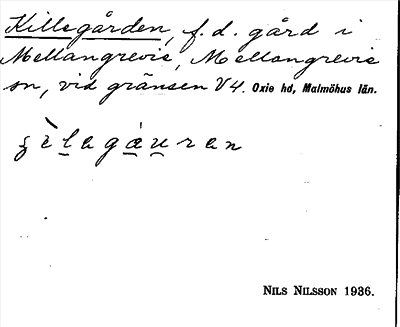 Killegården, f. d. gård i
Mellangrevie, Mellangrevie
sn, vid gränsen V4. Oxie hd, Malmöhus län.
NILS NILSSON 1936.